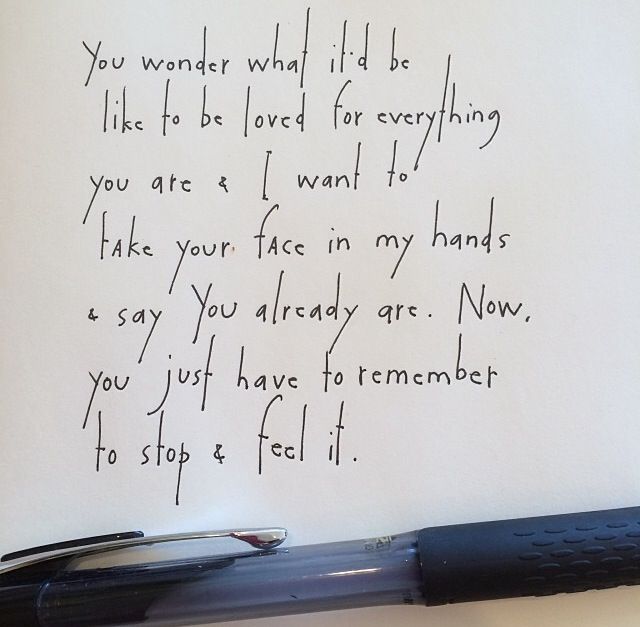 You wonder what it'd be
like to be loved for everything
you are & I want to
take your face in my hands
& say You already are. Now,
you just have to remember
to stop & feel it.